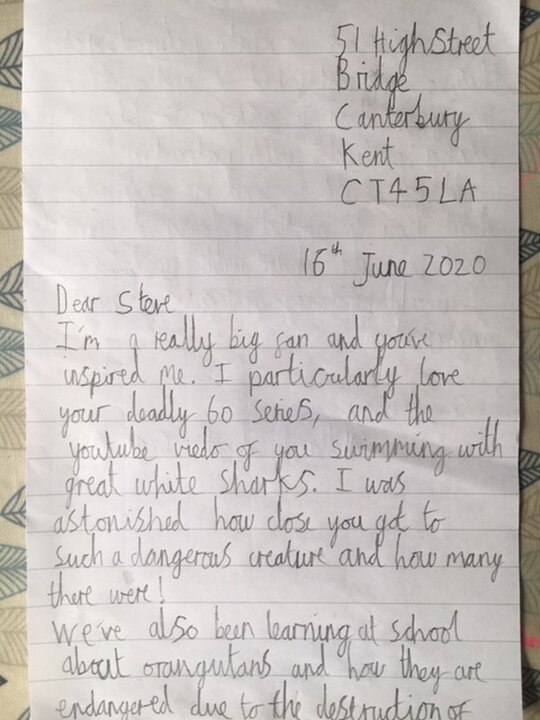 51 High Street
Bridge
Canterbury
Kent
CT4 5LA
16th June 2020
Dear Steve
I'm a really big fan and you've
inspired me. I particularly love
your deadly 60 series, and the
youtube viedo of you swimming with
great white sharks. I was
astonished how close you got to
such a dangerous creature and how many
there were!
We've also been learning at school
about orangutans and how they are
endangered due to the destruction of